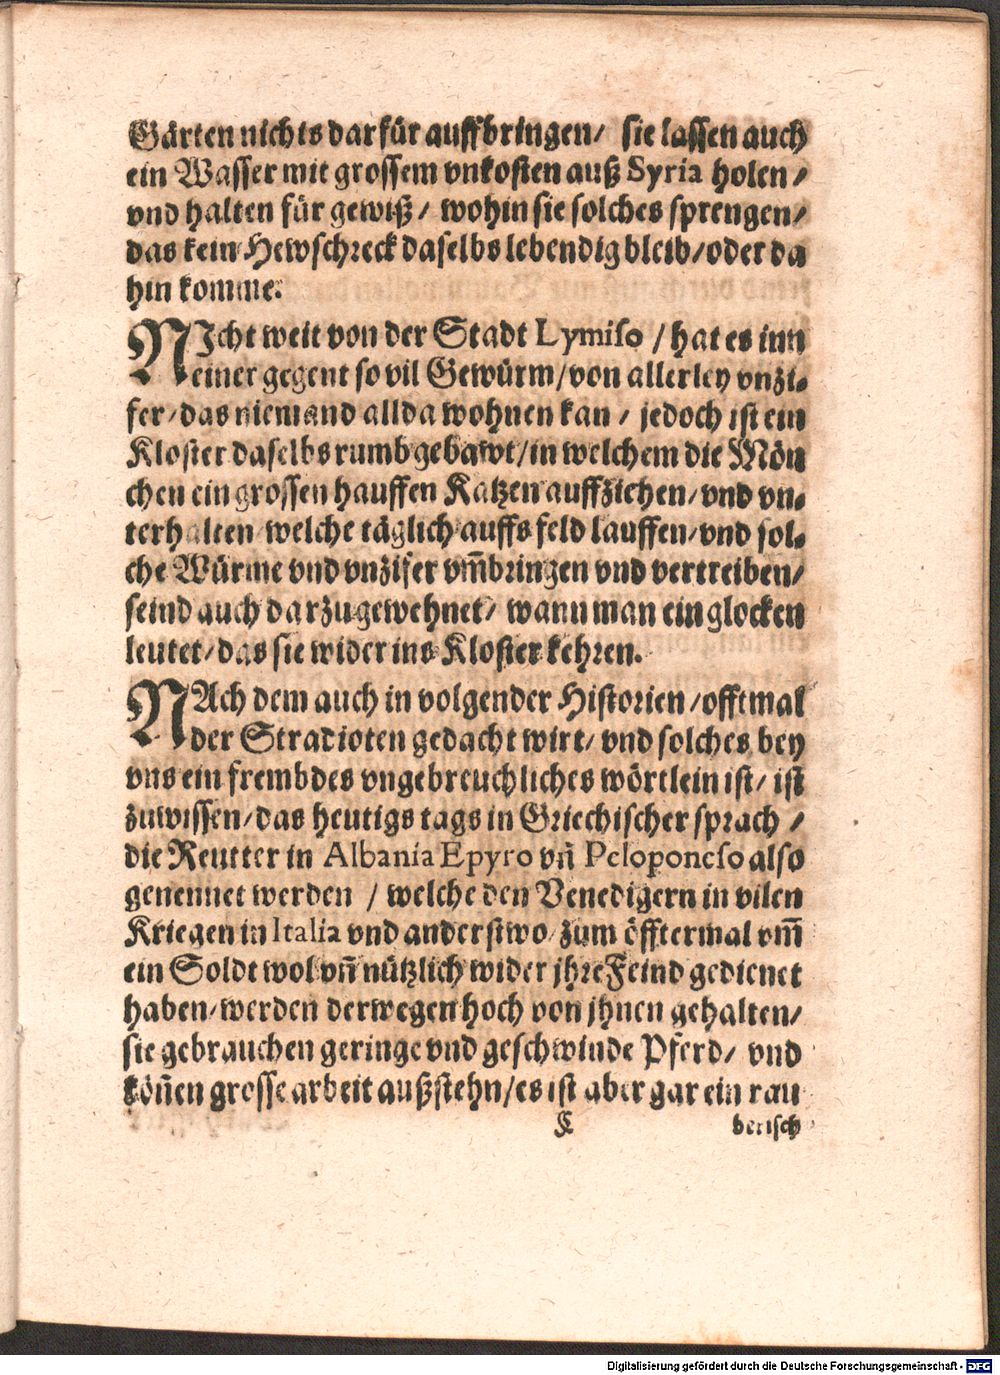 Gärten nichts darfür auffbringen/ sie lassen auch
ein Wasser mit grossem vnkosten auß Syria holen/
vnd halten für gewiß/ wohin sie solches sprengen/
das kein Hewschreck daselbs lebendig bleib/oder da
hin komme.
NIcht weit von der Stadt Lymiso / hat es inn
einer gegent so vil Gewürm/von allerley vnzi-
fer/das niemand allda wohnen kan / jedoch ist ein
Kloster daselbs rumb gebawt/in welchem die Mön
chen ein grossen hauffen Katzen auffziehen/vnd vn-
terhalten welche täglich auffs feld lauffen/vnd sol-
che Würme vnd vnzifer vm̃bringen vnd vertreiben/
seind auch darzu gewehnet/ wann man ein glocken
leutet/das sie wider ins Kloster kehren.
NAch dem auch in volgender Historien/offtmal
der Stradioten gedacht wirt/ vnd solches bey
vns ein frembdes vngebreuchliches wörtlein ist/ ist
zuwissen/das heutigs tags in Griechischer sprach /
die Reutter in Albania Epyro vñ Peloponeso also
genennet werden / welche den Venedigern in vilen
Kriegen in Italia vnd anderstwo/zum öfftermal vm̃
ein Soldt wol vñ nützlich wider jhre Feind gedienet
haben/werden derwegen hoch von jhnen gehalten/
sie gebrauchen geringe vnd geschwinde Pferd/ vnd
köñen grosse arbeit außstehn/es ist aber gar ein rau
K berisch
Digitalisierung gefördert durch die Deutsche Forschungsgemeinschaft - DFG